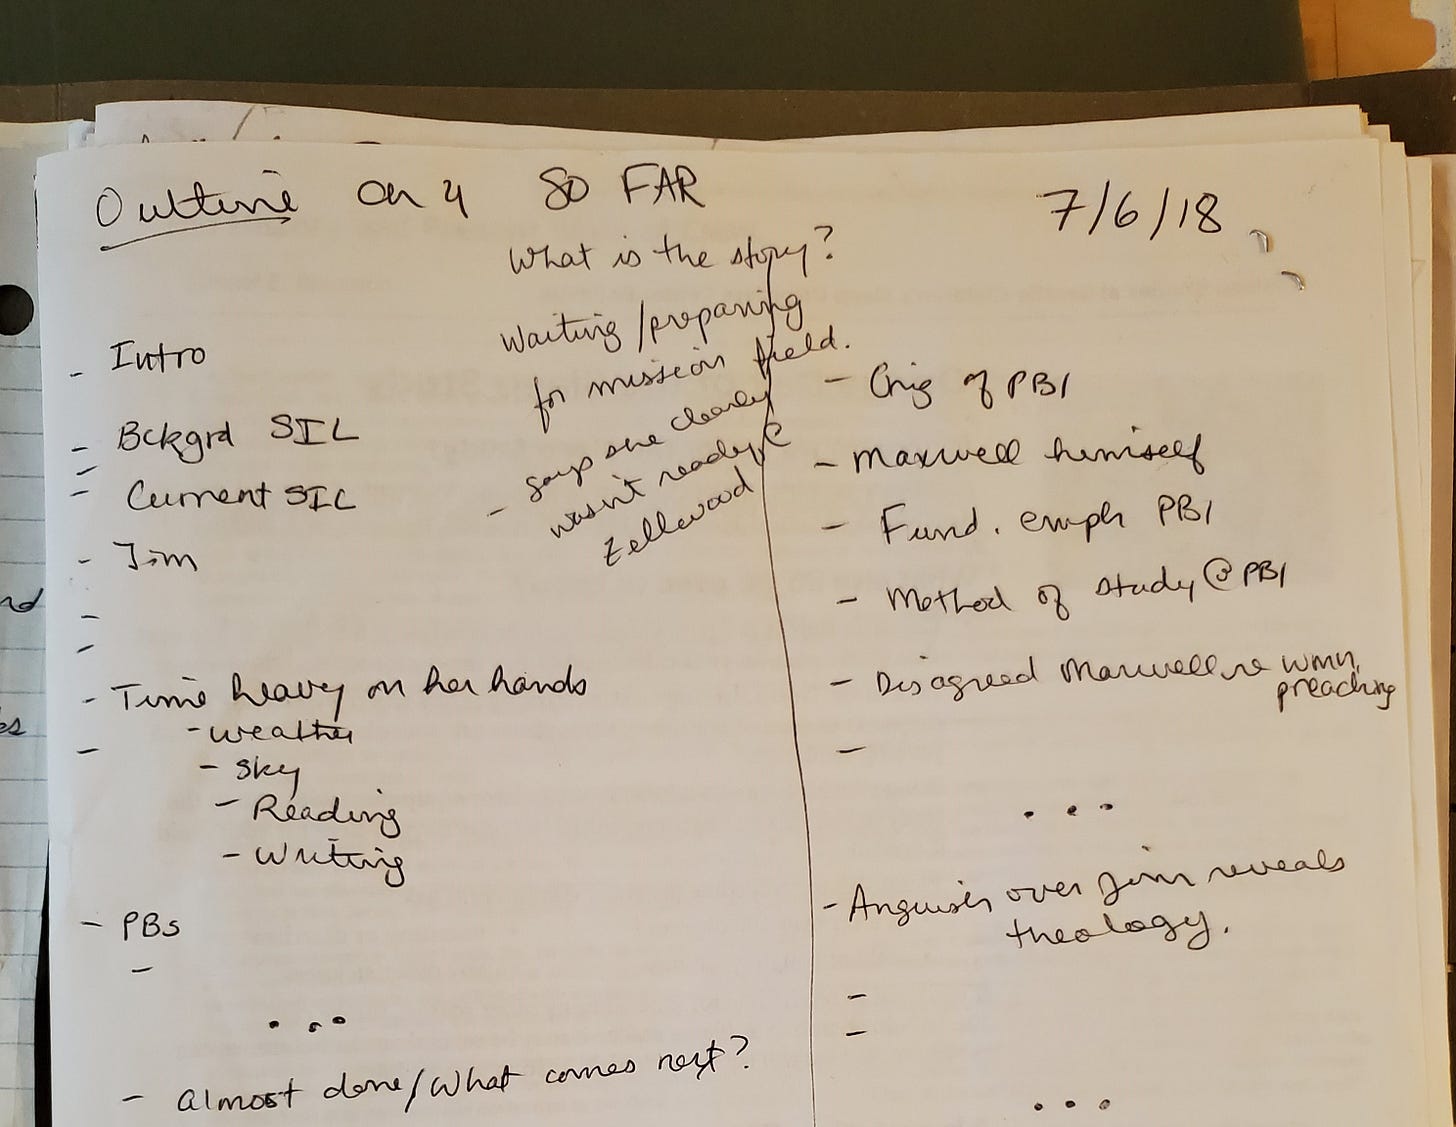 Outline Ch 4 SO FAR
7/6/18
What is the story?
Waiting/preparing
for mission field.
- says she clearly
wasn't ready, @
Zellwood
- Intro
- Bckgrd SIL
-
- Current SIL
- Jim
-
-
- Time heavy on her hands
- weather
-
- Sky
- Reading
- Writing
- PBs
-
...
- Almost done/What comes next?
- Orig of PBI
- Maxwell himself
- Fund. emph PBI
- Method of study @ PBI
- Disagreed Maxwell re wmn,
preaching
-
...
- Anguish over Jim reveals
theology.
-
-
...